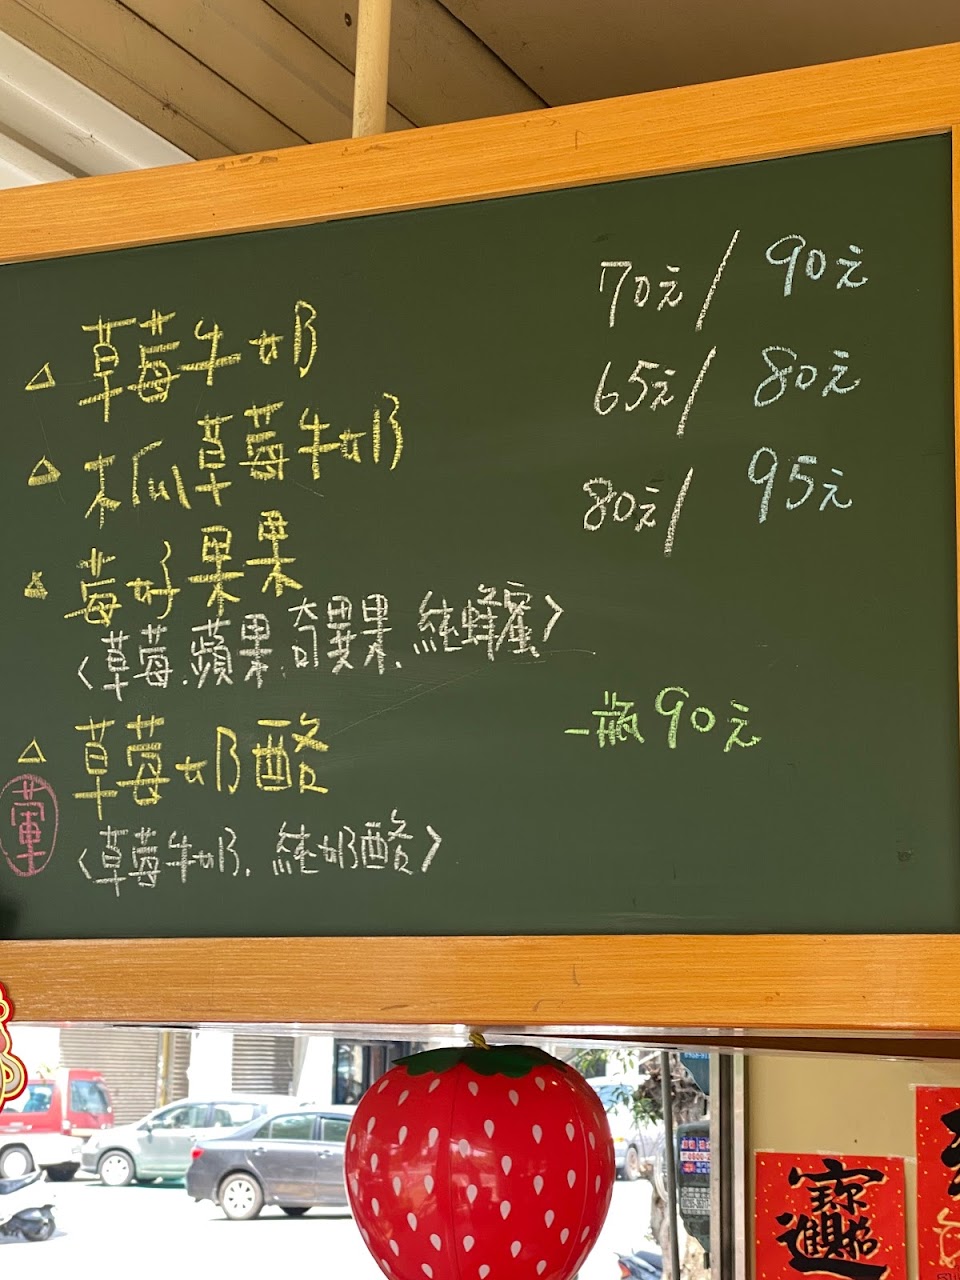 △ 草莓牛奶 70元/90元
△ 木瓜草莓牛奶 65元/80元
△ 莓好果果 80元/95元
〈草莓.蘋果.奇異果.純蜂蜜〉
△ 草莓奶酪 一瓶90元
葷
〈草莓牛奶.純奶酪〉
招財進寶